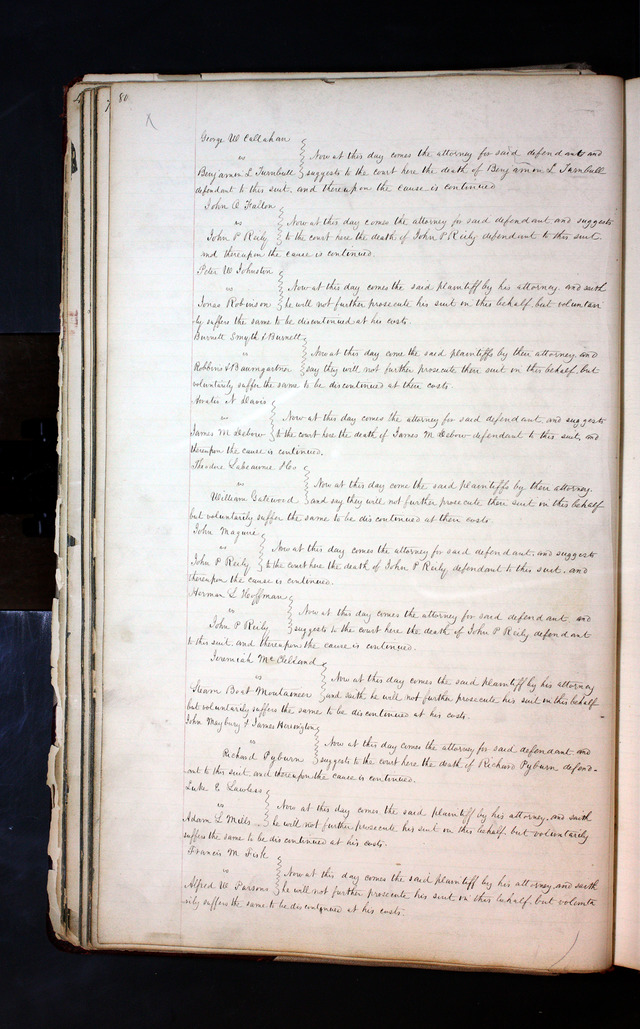 80
George W Callahan
vs
Now at this day comes the attorney for said defendant and
Benjamin L Turnbull suggests to the court here the death of Benjamin L Turnbull
defendant to this suit, and thereupon the cause is continued
John O Fallon
vs
Now at this day comes the attorney for said defendant and suggests
John P Reily to the court here the death of John P Reily defendant to this suit
and thereupon the cause is continued.
Peter W Johnston
vs
Now at this day comes the said plaintiff by his attorney and saith
Jonas Robinson he will not further prosecute his suit in this behalf but voluntari
ly suffers the same to be discontinued at his costs.
Burnett Smyth & Burnett
vs
Now at this day come the said plaintiffs by their attorney and
Robbins & Baumgartner say they will not further prosecute their suit in this behalf, but
voluntarily suffer the same to be discontinued at their costs.
N Davis
vs
Now at this day comes the attorney for said defendant and suggests
James M Desbow to the court here the death of James M Desbow defendant to this suit, and
thereupon the cause is continued.
Theodore Labeaume
vs
Now at this day come the said plaintiffs by their attorney.
William Gatewood and say they will not further prosecute their suit in this behalf
but voluntarily suffer the same to be discontinued at their costs.
John Maguire
vs
Now at this day comes the attorney for said defendant, and suggests
John P Reily to the court here the death of John P Reily defendant to this suit, and
thereupon the cause is continued.
Herman L Hoffman
vs
Now at this day comes the attorney for said defendant and
John P Reily suggests to the court here the death of John P Reily defendant
to this suit, and thereupon the cause is continued.
Jeremiah McClelland
vs
Now at this day comes the said plaintiff by his attorney
Steam Boat Mountaineer and saith he will not further prosecute his suit in this behalf
but voluntarily suffers the same to be discontinued at his costs.
John Maybury & James Herrington
vs
Now at this day comes the attorney for said defendant and
Richard Pyburn suggests to the court here the death of Richard Pyburn defend-
ant to this suit, and thereupon the cause is continued.
Luke E Lawless
vs
Now at this day comes the said plaintiff by his attorney, and saith
Adam L Mills he will not further prosecute his suit in this behalf, but voluntarily
suffers the same to be discontinued at his costs.
Francis M Fisk
vs
Now at this day comes the said plaintiff by his attorney, and saith
Alfred W Parsons he will not further prosecute his suit in this behalf, but volunta
rily suffers the same to be discontinued at his costs.